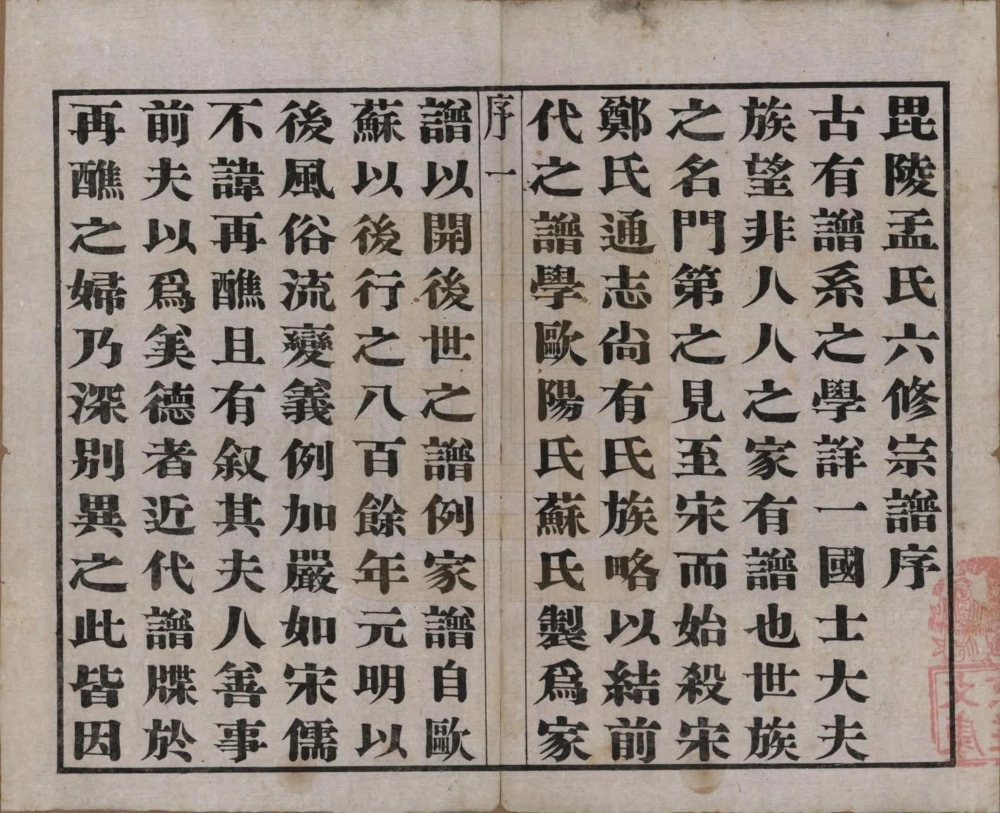 毘陵孟氏六修宗譜序
古有譜系之學詳一國士大夫
族望非人人之家有譜也世族
之名門第之見至宋而始殺宋
鄭氏通志尙有氏族略以結前
代之譜學歐陽氏蘇氏製爲家
序 一
譜以開後世之譜例家譜自歐
蘇以後行之八百餘年元明以
後風俗流變義例加嚴如宋儒
不諱再醮且有叙其夫人善事
前夫以爲美德者近代譜牒於
再醮之婦乃深别異之此皆因